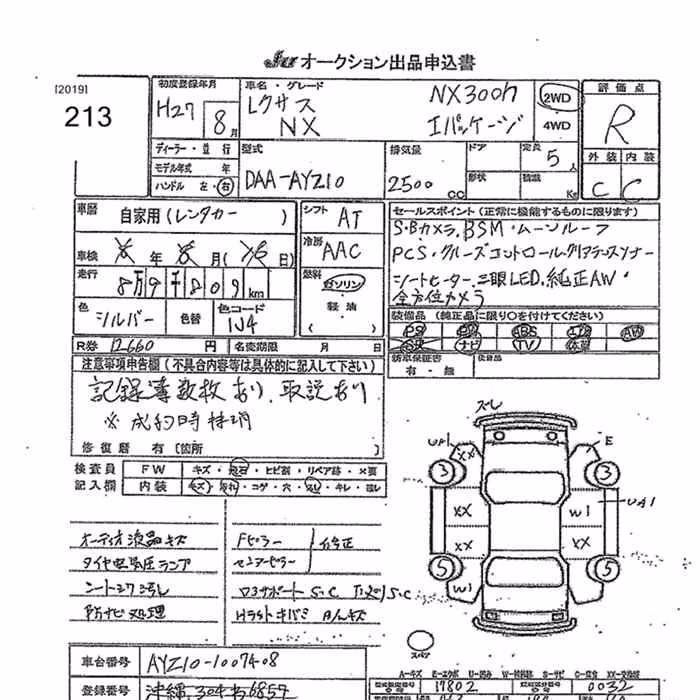 JU オークション出品申込書
[2019]
213
初度登録年月
H27 8月
車名・グレード
レクサス
NX
NX300h
Iパッケージ
2WD
4WD
評価点
R
外装 内装
C C
ディーラー・並行
モデル年式 年
ハンドル 左・右
型式
DAA-AYZ10
排気量
2500 CC
ドア
形状
定員
5人
積載
Kg
車歴
自家用(レンタカー)
シフト
AT
冷房
AAC
車検
年 月( 日)
走行
8万9千809km
燃料
ガソリン
軽油
( )
色
シルバー
色替
色コード
1J4
R券 12660 円
名変期限 月 日
セールスポイント(正常に機能するものに限ります)
S・Bカメラ、BSM・ムーンルーフ
PCS・クルーズコントロール・クリアランスソナー
シートヒーター、三眼LED、純正AW・
全方位カメラ
装備品(純正品に限り〇を付けてください)
PS PW ABS エアB AW
SR ナビ TV 体革
新車保証書
有・無
後日品
注意事項申告欄(不具合内容等は具体的に記入して下さい)
記録簿数枚あり、取説あり
※ 成約時
修復歴 有(箇所
検査員
記入欄
FW キズ・飛石・ヒビ割・リペア跡・×要
内装 キズ・汚れ・コゲ・穴・スレ・キレ・
オーディオ液晶キズ
タイヤ空気圧ランプ
シートシワ汚れ
Fピラー
センターピラー
修正
ロアサポート S・C
スレ
UA1
XX
E
3
3
UA1
XX
W1
XX
XX
5
5
W1
スペア
A-キズ E-エクボ U-凹み W-補修跡 S-サビ C-腐食 XX-交換跡
車台番号
AYZ10-1007408
登録番号
17802
0032